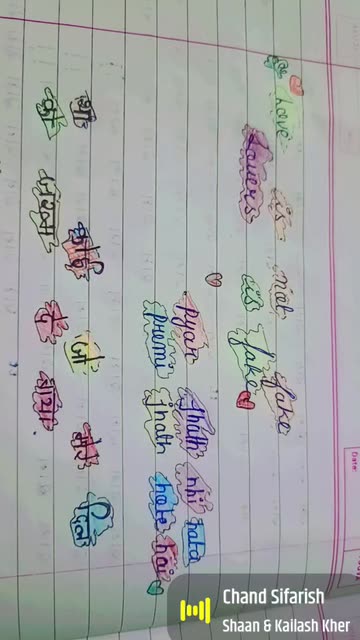 Love is not fake
Lovers is fake
Pyar Jhuth nhi hota
premi jhuth hote hai
कोई जो दिल
को जख्म दे गया
Date:
Chand Sifarish
Shaan & Kailash Kher